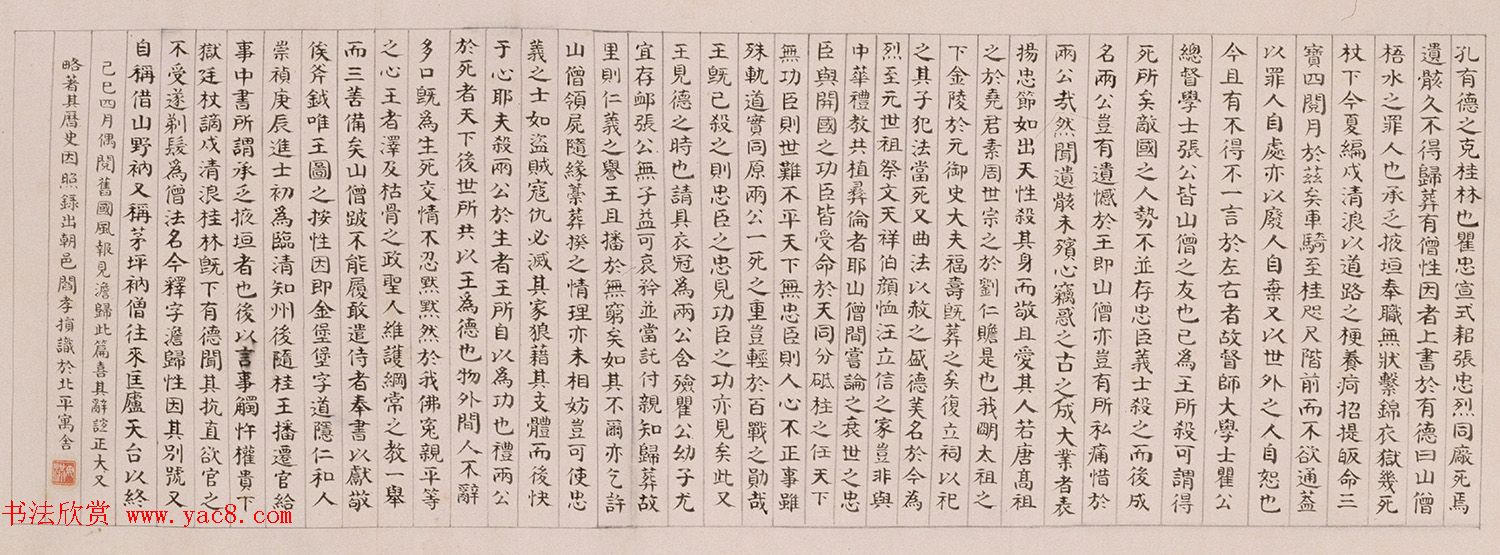 孔有德之克桂林也瞿忠宣式耜張忠烈同敞死焉
遺骸久不得歸葬有僧性因者上書於有德曰山僧
梧水之罪人也承乏掖垣奉職無狀繫錦衣獄幾死
杖下今夏編戍清浪以道路之梗養疴招提皈命三
寶四閱月於茲矣車騎至桂咫尺階前而不欲通蓋
以罪人自處亦以廢人自棄又以世外之人自恕也
今且有不得不一言於左右者故督師大學士瞿公
總督學士張公皆山僧之友也已為王所殺可謂得
死所矣敵國之人勢不並存忠臣義士殺之而後成
名兩公豈有遺憾於王即山僧亦豈有所私痛惜於
兩公哉然聞遺骸未殯心竊惑之古之成大業者表
揚忠節如出天性殺其身而敬且愛其人若唐高祖
之於堯君素周世宗之於劉仁瞻是也我明太祖之
下金陵於元御史大夫福壽既葬之矣復立祠以祀
之其子犯法當死又曲法以赦之盛德美名於今為
烈至元世祖祭文天祥伯顏恤汪立信之家豈非與
中華禮教共植彝倫者耶山僧間嘗論之衰世之忠
臣與開國之功臣皆受命於天同分砥柱之任天下
無功臣則世難不平天下無忠臣則人心不正事雖
殊軌道實同原兩公一死之重豈輕於百戰之勛哉
王既已殺之則忠臣之忠見功臣之功亦見矣此又
王見德之時也請具衣冠為兩公含殮瞿公幼子尤
宜存卹張公無子益可哀矜並當託付親知歸葬故
里則仁義之譽王且播於無窮矣如其不爾亦乞許
山僧領屍隨緣藁葬揆之情理亦未相妨豈可使忠
義之士如盜賊寇仇必滅其家狼藉其支體而後快
于心耶夫殺兩公於生者王所自以為功也禮兩公
於死者天下後世所共以王為德也物外閒人不辭
多口既為生死交情不忍默默然於我佛冤親平等
之心王者澤及枯骨之政聖人維護綱常之教一舉
而三善備矣山僧跛不能履敢遣侍者奉書以獻敬
俟斧鉞唯王圖之按性因即金堡堡字道隱仁和人
崇禎庚辰進士初為臨清知州後隨桂王播遷官給
事中書所謂承乏掖垣者也後以言事觸忤權貴下
獄廷杖謫戍清浪桂林既下有德聞其抗直欲官之
不受遂剃髮為僧法名今釋字澹歸性因其別號又
自稱借山野衲又稱茅坪衲僧往來匡廬天台以終
己巳四月偶閱舊國風報見澹歸此篇喜其辭誼正大又
略著其曆史因照錄出朝邑閻李摃識於北平寓舍
书法欣赏 www.yac8.com